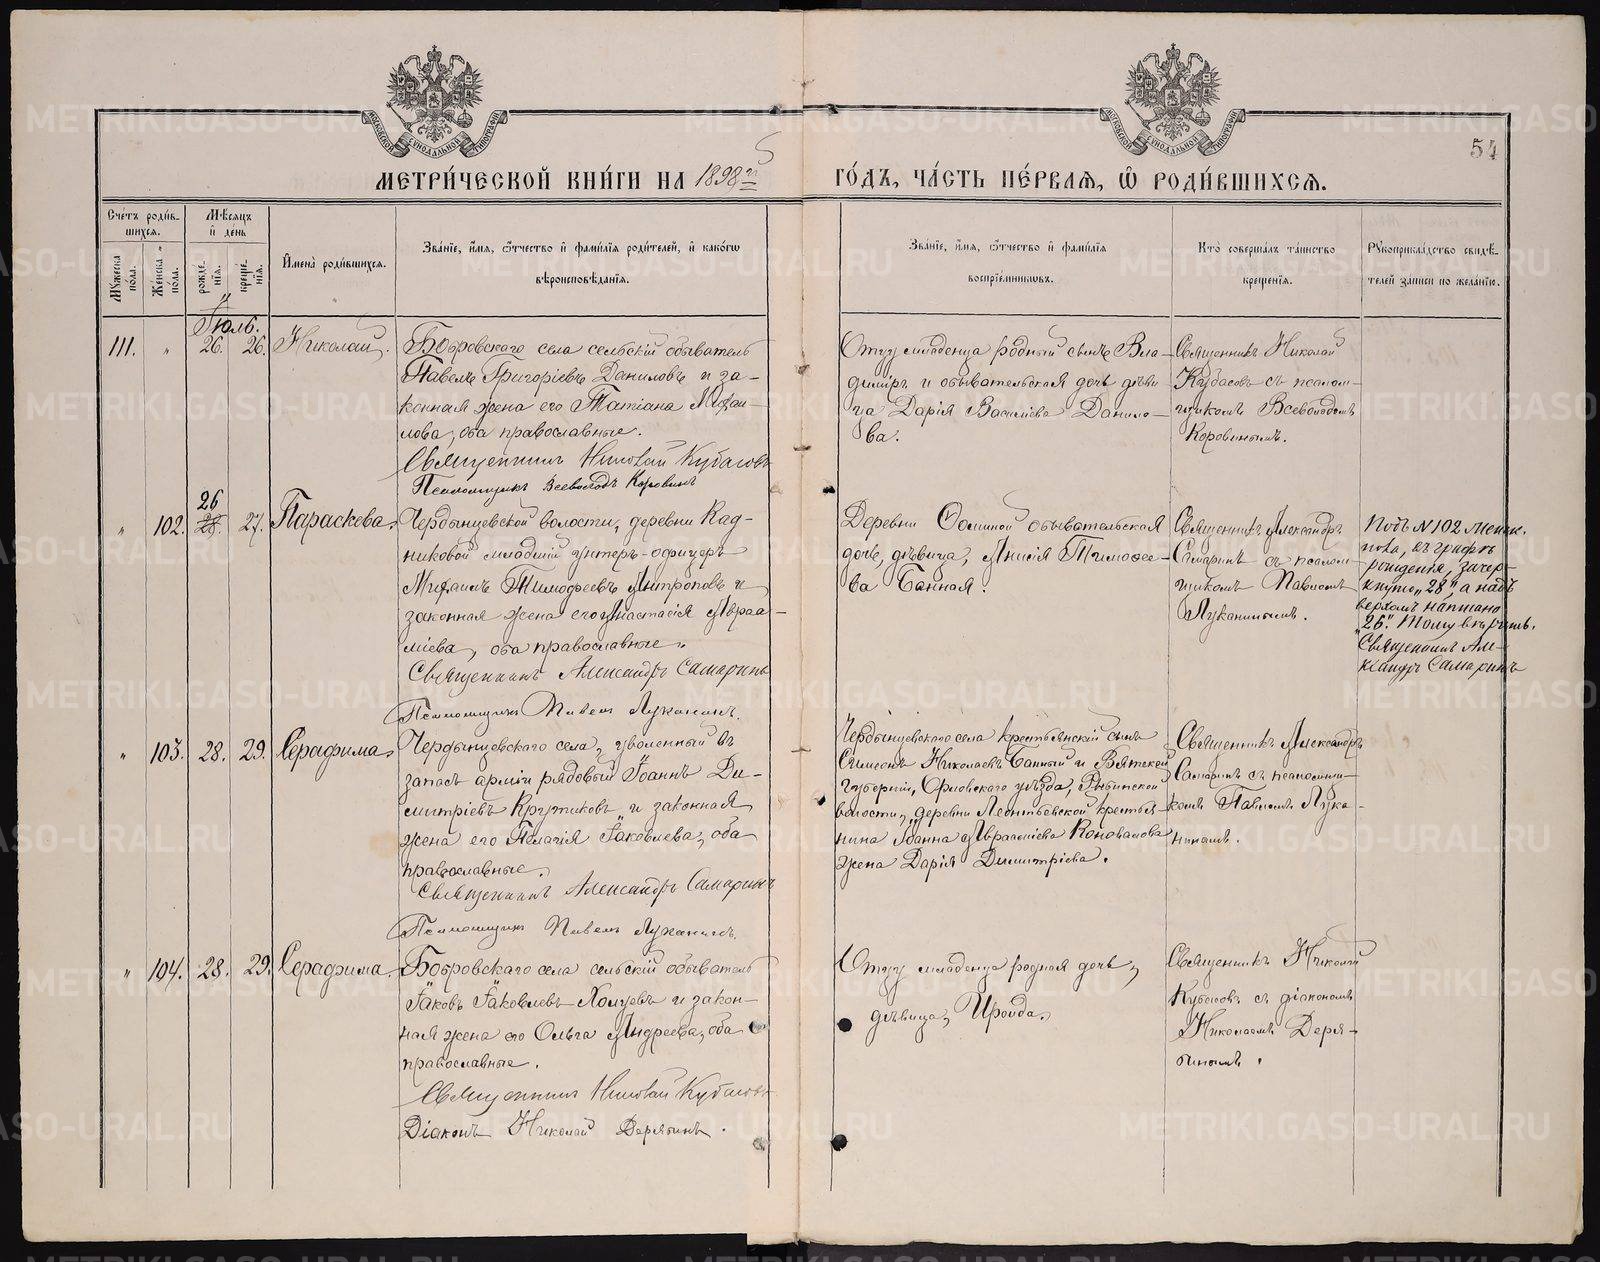 54
МЕТРИ́ЧЕСКОЙ КНИ́ГИ НА 1898й
ГО́ДЪ, ЧА́СТЬ ПЕ́РВАѦ, Ѡ РОДИ́ВШИХСѦ.
Сче́тъ роди́в-
шихсѧ.
Мꙋжеска по́ла.
Же́нска по́ла.
Мѣ́сѧцъ
и҆ де́нь
рожде́-
нїѧ.
креще́-
нїѧ.
И҆мена̀ роди́вшихсѧ.
Зва́нїе, и҆́мѧ, ѻ҆́тчество и҆ фами́лїѧ роди́телей, и҆ како́гѡ
вѣроисповѣ́данїѧ.
Зва́нїе, и҆́мѧ, ѻ҆́тчество и҆ фами́лїѧ
воспрїе́мникѡвъ.
Кто̀ соверша́лъ та́инство
креще́нїѧ.
Рꙋкоприкла́дство свидѣ́-
телей за́писи по жела́нїю.
Іюль.
111.
"
26.
26.
Николай.
Бобровскаго села сельскій обыватель
Павелъ Григоріевъ Даниловъ и за-
конная жена его Татіана Михаи-
лова, оба православные.
Священникъ Николай Кубасовъ
Псаломщикъ Всеволодъ Коровинъ
Отцу младенца родный сынъ Вла-
димiръ и обывательская дочь дѣви-
ца Дарія Васильева Данило-
ва.
Священникъ Николай
Кубасовъ съ псалом-
щикомъ Всеволодомъ
Коровинымъ.
"
102.
26
28.
27.
Параскева.
Чердынцевской волости, деревни Кад-
никовой младшій унтеръ-офицеръ
Михаилъ Тимофеевъ Антроповъ и
законная жена его Анастасія Авраа-
міева, оба православные.
Священникъ Александръ Самаринъ
Псаломщикъ Павелъ Луканинъ.
Деревни Фоминой обывательская
дочь, дѣвица, Анисія Тимофее-
ва Банная.
Священникъ Александръ
Самаринъ съ псалом-
щикомъ Павломъ
Луканинымъ.
Подъ N 102 женск.
пола, въ графѣ
рожденія, зачер-
кнуто „28“, а надъ
верхомъ написано
„26“. Тому вѣримъ.
Священникъ Але-
ксандръ Самаринъ
"
103.
28.
29.
Серафима.
Чердынцевскаго села, уволенный въ
запасъ арміи рядовый Іоаннъ Ди-
митріевъ Крутиковъ и законная
жена его Пелагія Іаковлева, оба
православные.
Священникъ Александръ Самаринъ
Псаломщикъ Павелъ Луканинъ.
Чердынцевскаго села крестьянскій сынъ
Симеонъ Николаевъ Банный и Вятской
губерніи, Орловскаго уѣзда,
волости, деревни Леонтьевской крестья-
нина Іоанна Авраамiева Коновалова
жена Дарія Димитріева.
Священникъ Александръ
Самаринъ съ псаломщи-
комъ Павломъ Лука-
нинымъ.
"
104.
28.
29.
Серафима.
Бобровскаго села сельскій обыватель
Іаковъ Іаковлевъ Холуевъ и закон-
ная жена его Ольга Андреева, оба
православные.
Священникъ Николай Кубасовъ
Діаконъ Николай Дерябинъ.
Отцу младенца родная дочь,
дѣвица, Ираида.
Священникъ Николай
Кубасовъ съ діакономъ
Николаемъ Деря-
бинымъ.
METRIKI.GASO-URAL.RU